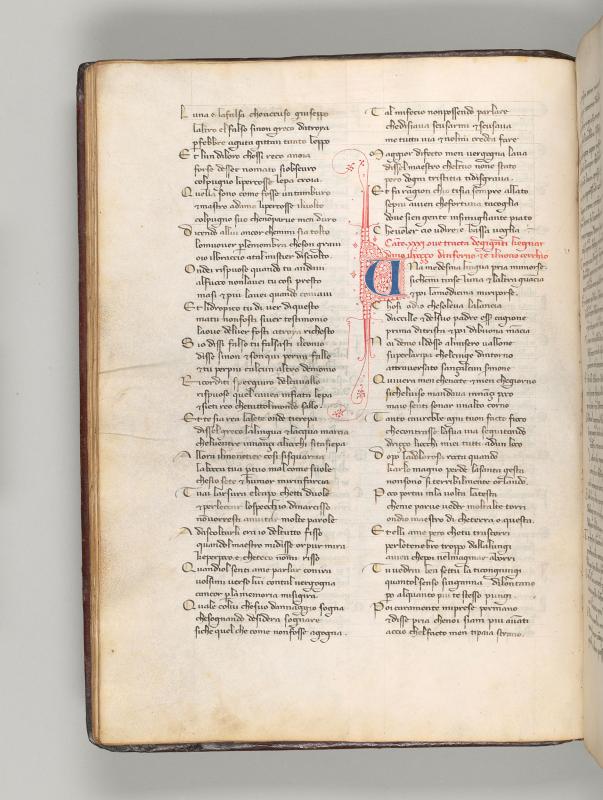 Luna e lafalsa chaccuso giuseppo
laltro el falso sinon greco ditroya
p febbre aguta gittan tanto leppo
Et lundiloro chessi reco anoia
forse desser nomato siobscuro
colpugno lipercosse lepa croia
Quella sono come fosse un tamburo
e mastro adamo lipercosse iluolto
colpugno suo chenoparue men duro
Dicendo allui ancor chemmi sia tolto
lomuouer plemembra cheson graui
oio ilbraccio atal mistier disciolto
Ondei rispuose quando tu andaui
alfuoco nonlaueui tu cosi presto
masi e piu laueui quando coniaui
Et lidropico tu di uer diquesto
matu nonfosti siuer testimonio
laoue deluer fosti atroya richesto
Sio dissi falso tu falsasti ilconio
disse sinon e sonqui perun fallo
e tu perpiu calcun altro demonio
Ricorditi spergiuro delcauallo
rispuose quel cauea infiata lepa
e sieti reo chetuttolmondo sallo
Et te sia rea lasete onde ticrepa
dissel greco lalingua e lacqua marcia
chelventre innanzi aliocchi sitasiepa
Allora ilmonetier cosi sisquarcia
labocca tua ptuo mal come suole
chesio sete e humor mirinfarcia
Tuai larsura elcapo chetti duole
e perleccar lospecchio dinarcisso
nouorresti anuitar molte parole
Adascoltarli ero io deltutto fisso
quandol maestro midisse or pur mira
cheperpoco e cheteco nomi risso
Quandiol senti ame parlar conira
volsimi verso lui contal vergogna
cancor pla memoria misigira
Quale colui chesuo dannaggio sogna
chesognando desidera sognare
siche quel che come nonfosse agogna.
Tal mifecio nonpossendo parlare
chedisiaua scusarmi e scusaua
me tutta via e nolmi credea fare
Maggior difetto men vergogna laua
dissel maestro cheltuo none stato
pero dogni tristitia tidisgraua.
Et fa ragion chio tisia sempre allato
sepiu auien chefortuna taccoglia
doue sien gente insimigliante piato
Chevoler cio udire e bassa voglia
Cato xxxj oue tracta degiganti
Una medesma lingua pria mimorse
sichemi tinse luna e laltra guacia
e poi lamedicina miriporse.
Chosi odio chesoleua lalancia
dacchille e delsuo padre esser cagione
prima ditrista e poi dibuona mancia
Noi demo ildosso almisero vallone
superlaripa chelcinge dintorno
attraversato sanzalcun sermone
Quiuera men chenotte e men chegiorno
sicheluiso mandaua innanzi poco
maio senti sonar unalto corno
Tanto caurebbe ogni tuon facto fioco
checontrasse lasua via seguitando
drizzo liocchi miei tutti adun loco
Dopo ladolorosa rocta quando
carlo magno perde lasanta gesta
nonsono si terribilmente orlando.
Poco portai inla volta latesta
cheme parue veder moltalte torri
ondio maestro di cheterra e questa.
Et elli ame pero chetu trascorri
perletenebre troppo dallalungi
auien chepoi nelmaginar aborri
Tu vedrai ben setu la ticongiungi
quantol senso singanna dilontano
po alquanto piu te stesso pungi
Poi caramente miprese permano
e disse pria chenoi siam piu auati
accio chelfacto men tipaia strano.